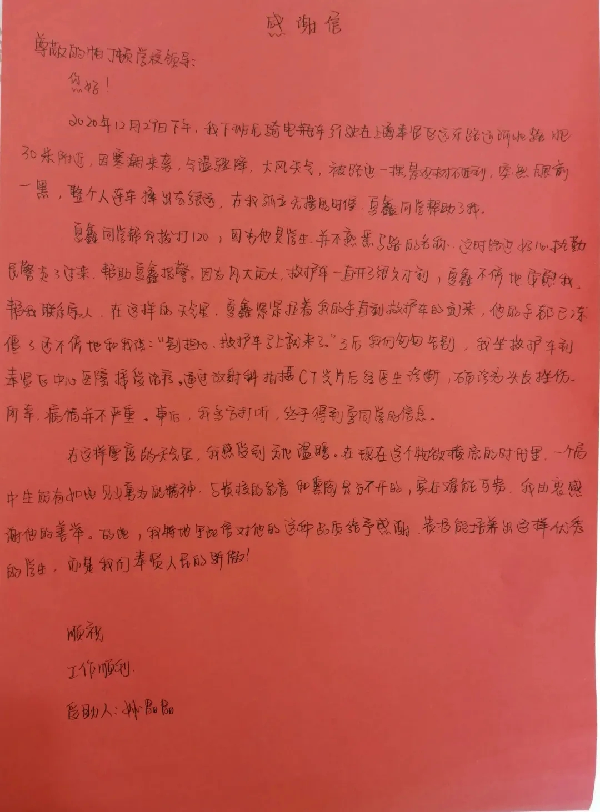 感谢信
尊敬的帕丁顿学校领导：
您好！
2020年12月29日下午，我下班后骑电瓶车行驶在上海奉贤区远东路近
30米附近，因寒潮来袭，气温骤降，大风天气，被路边一棵景观树不压到，突然眼前
一黑，整个人连车摔出去很远，在我孤立无援的时候，夏鑫同学帮助了我。
夏鑫同学帮我拨打120，因为他是学生，并不熟悉马路的名称，这时路过好心执勤
民警走了过来，帮助夏鑫报警。因为风大雨大，救护车一直开了很久才到，夏鑫不停地安慰我，
帮我联系家人，在这样的天气里，夏鑫紧紧拉着我的手直到救护车的到来，他的手都已冻
僵了还不停地和我说："别担心，救护车马上就来了。"之后我们匆匆告别，我坐救护车到
奉贤区中心医院接受治疗。通过放射科拍摄CT片后经医生诊断，右面诊为头皮挫伤，
所幸，病情并不严重。事后，我多方打听，终于得到夏同学的信息。
在这样寒夜的天气里，我感觉到无比温暖。在现在这个物欲横流的时代里，一个高
中生能有如此见义勇为的精神，与贵校的教育和熏陶分不开的，实在难能可贵，我由衷感
谢他的善举。为此，我特地写信对他的这种品质给予感谢，贵校能培养出这样优秀
的学生，亦是我们奉贤人民的骄傲！
顺祝
工作顺利
受助人：